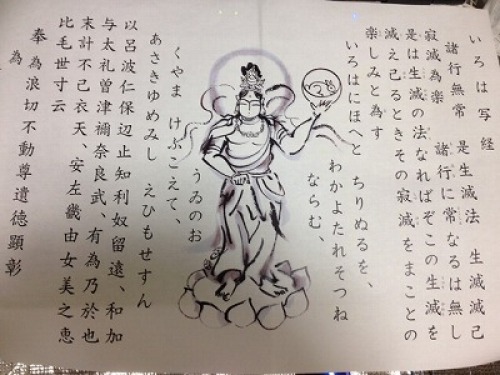 いろは写経
諸行無常　是生滅法　生滅滅己
寂滅為楽　諸行に常なるは無し
是は生滅の法なればぞこの生滅を
滅え己るときその寂滅をまことの
楽しみと為す
いろはにほへと　ちりぬるを、
わかよたれそつね
ならむ、
うゐのお
くやま　けぶこえて、
あさきゆめみし　えひもせすん
以呂波仁保辺止知利奴留遠、和加
与太礼曽津祢奈良武、有為乃於也
末計不己衣天、安左畿由女美之恵
比毛世寸云
奉為浪切不動尊遺徳顕彰
為